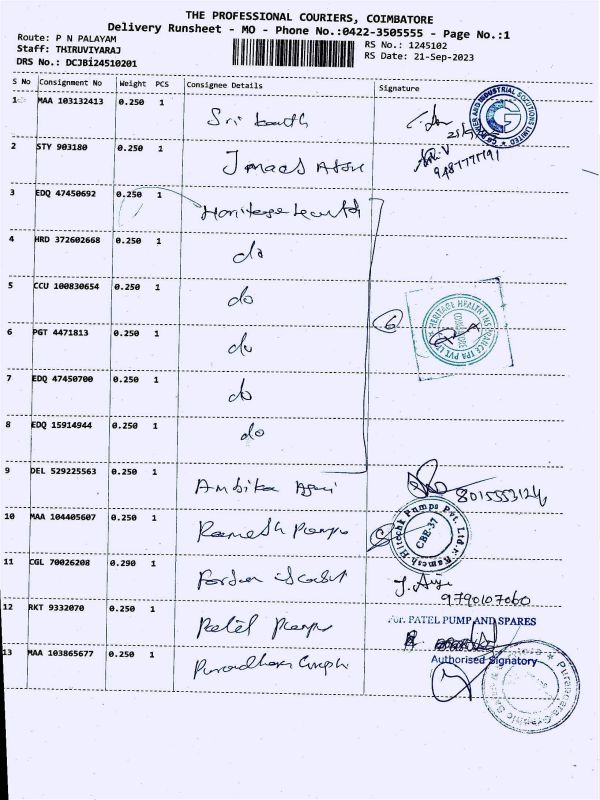 THE PROFESSIONAL COURIERS, COIMBATORE
Delivery Runsheet - MO - Phone No.:0422-3505555 - Page No.:1
Route: P N PALAYAM
RS No.: 1245102
Staff: THIRUVIYARAJ
RS Date: 21-Sep-2023
DRS No.: DCJBi24510201
S No Consignment No Weight PCS Consignee Details Signature
1 MAA 103132413 0.250 1 Sri
2 STY 903180 0.250 1
3 EDQ 47450692 0.250 1 Heritage Health
4 HRD 372602668 0.250 1 do
5 CCU 100830654 0.250 1 do
6 PGT 4471813 0.250 1 do
6
HERITAGE HEALTH INSURANCE TPA PVT LTD
7 EDQ 47450700 0.250 1 do
8 EDQ 15914944 0.250 1 do
9 DEL 529225563 0.250 1 Ambika 8015553124
10 MAA 104405607 0.250 1 Ramesh Pumps
Ramesh Hitechk Pumps Pvt. Ltd.
CBE-37
11 CGL 70026208 0.290 1
9790107060
12 RKT 9332070 0.250 1 Patel Pumps
For. PATEL PUMP AND SPARES
Authorised Signatory
13 MAA 103865677 0.250 1